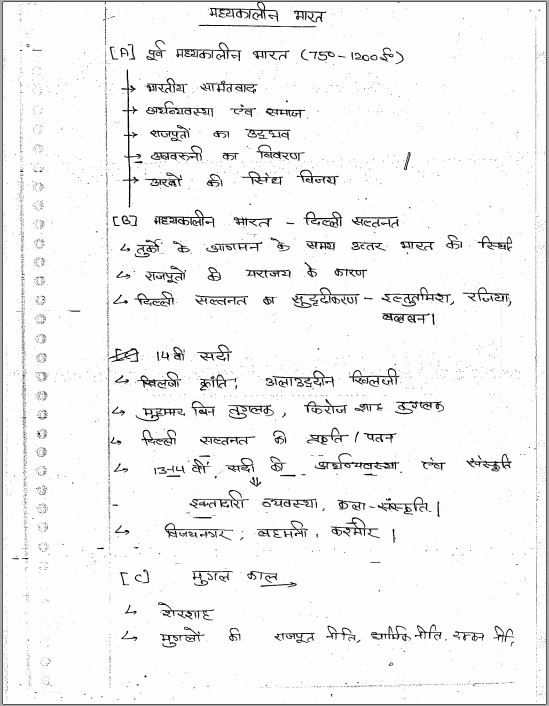 मध्यकालीन भारत
[A] पूर्व मध्यकालीन भारत (750-1200 ई०)
→ भारतीय सामंतवाद
→ अर्थव्यवस्था एंव समाज
→ राजपूतों का उद्भव
→ अलबरुनी का विवरण
→ अरबों की सिंध विजय
[B] मध्यकालीन भारत - दिल्ली सल्तनत
↳ तुर्कों के आगमन के समय उत्तर भारत की स्थिति
↳ राजपूतों की पराजय के कारण
↳ दिल्ली सल्तनत का सुदृढीकरण - इल्तुतमिश, रजिया,
बलबन।
14वीं सदी
↳ खिलजी क्रांति; अलाउद्दीन खिलजी
↳ मुहम्मद बिन तुगलक, फिरोज शाह तुगलक
↳ दिल्ली सल्तनत की प्रकृति / पतन
↳ 13-14 वीं सदी की अर्थव्यवस्था एंव संस्कृति
⇓
- इक्तादारी व्यवस्था, कला-संस्कृति।
↳ विजयनगर, बहमनी, कश्मीर।
[C] मुगल काल
↳ शेरशाह
↳ मुगलों की राजपूत नीति, धार्मिक नीति, दक्कन नीति,